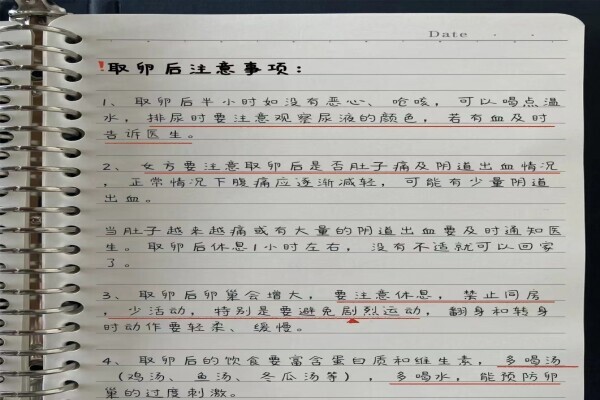 Date
!取卵后注意事项：
1、取卵后半小时如没有恶心、呛咳，可以喝点温
水，排尿时要注意观察尿液的颜色，若有血及时
告诉医生。
2、女方要注意取卵后是否肚子痛及阴道出血情况
，正常情况下腹痛应逐渐减轻，可能有少量阴道
出血。
当肚子越来越痛或有大量的阴道出血要及时通知医
生。取卵后休息1小时左右，没有不适就可以回家
了。
3、取卵后卵巢会增大，要注意休息，禁止同房
，少活动，特别是要避免剧烈运动，翻身和转身
时动作要轻柔、缓慢。
4、取卵后的饮食要富含蛋白质和维生素，多喝汤
（鸡汤、鱼汤、冬瓜汤等），多喝水，能预防卵
巢的过度刺激。